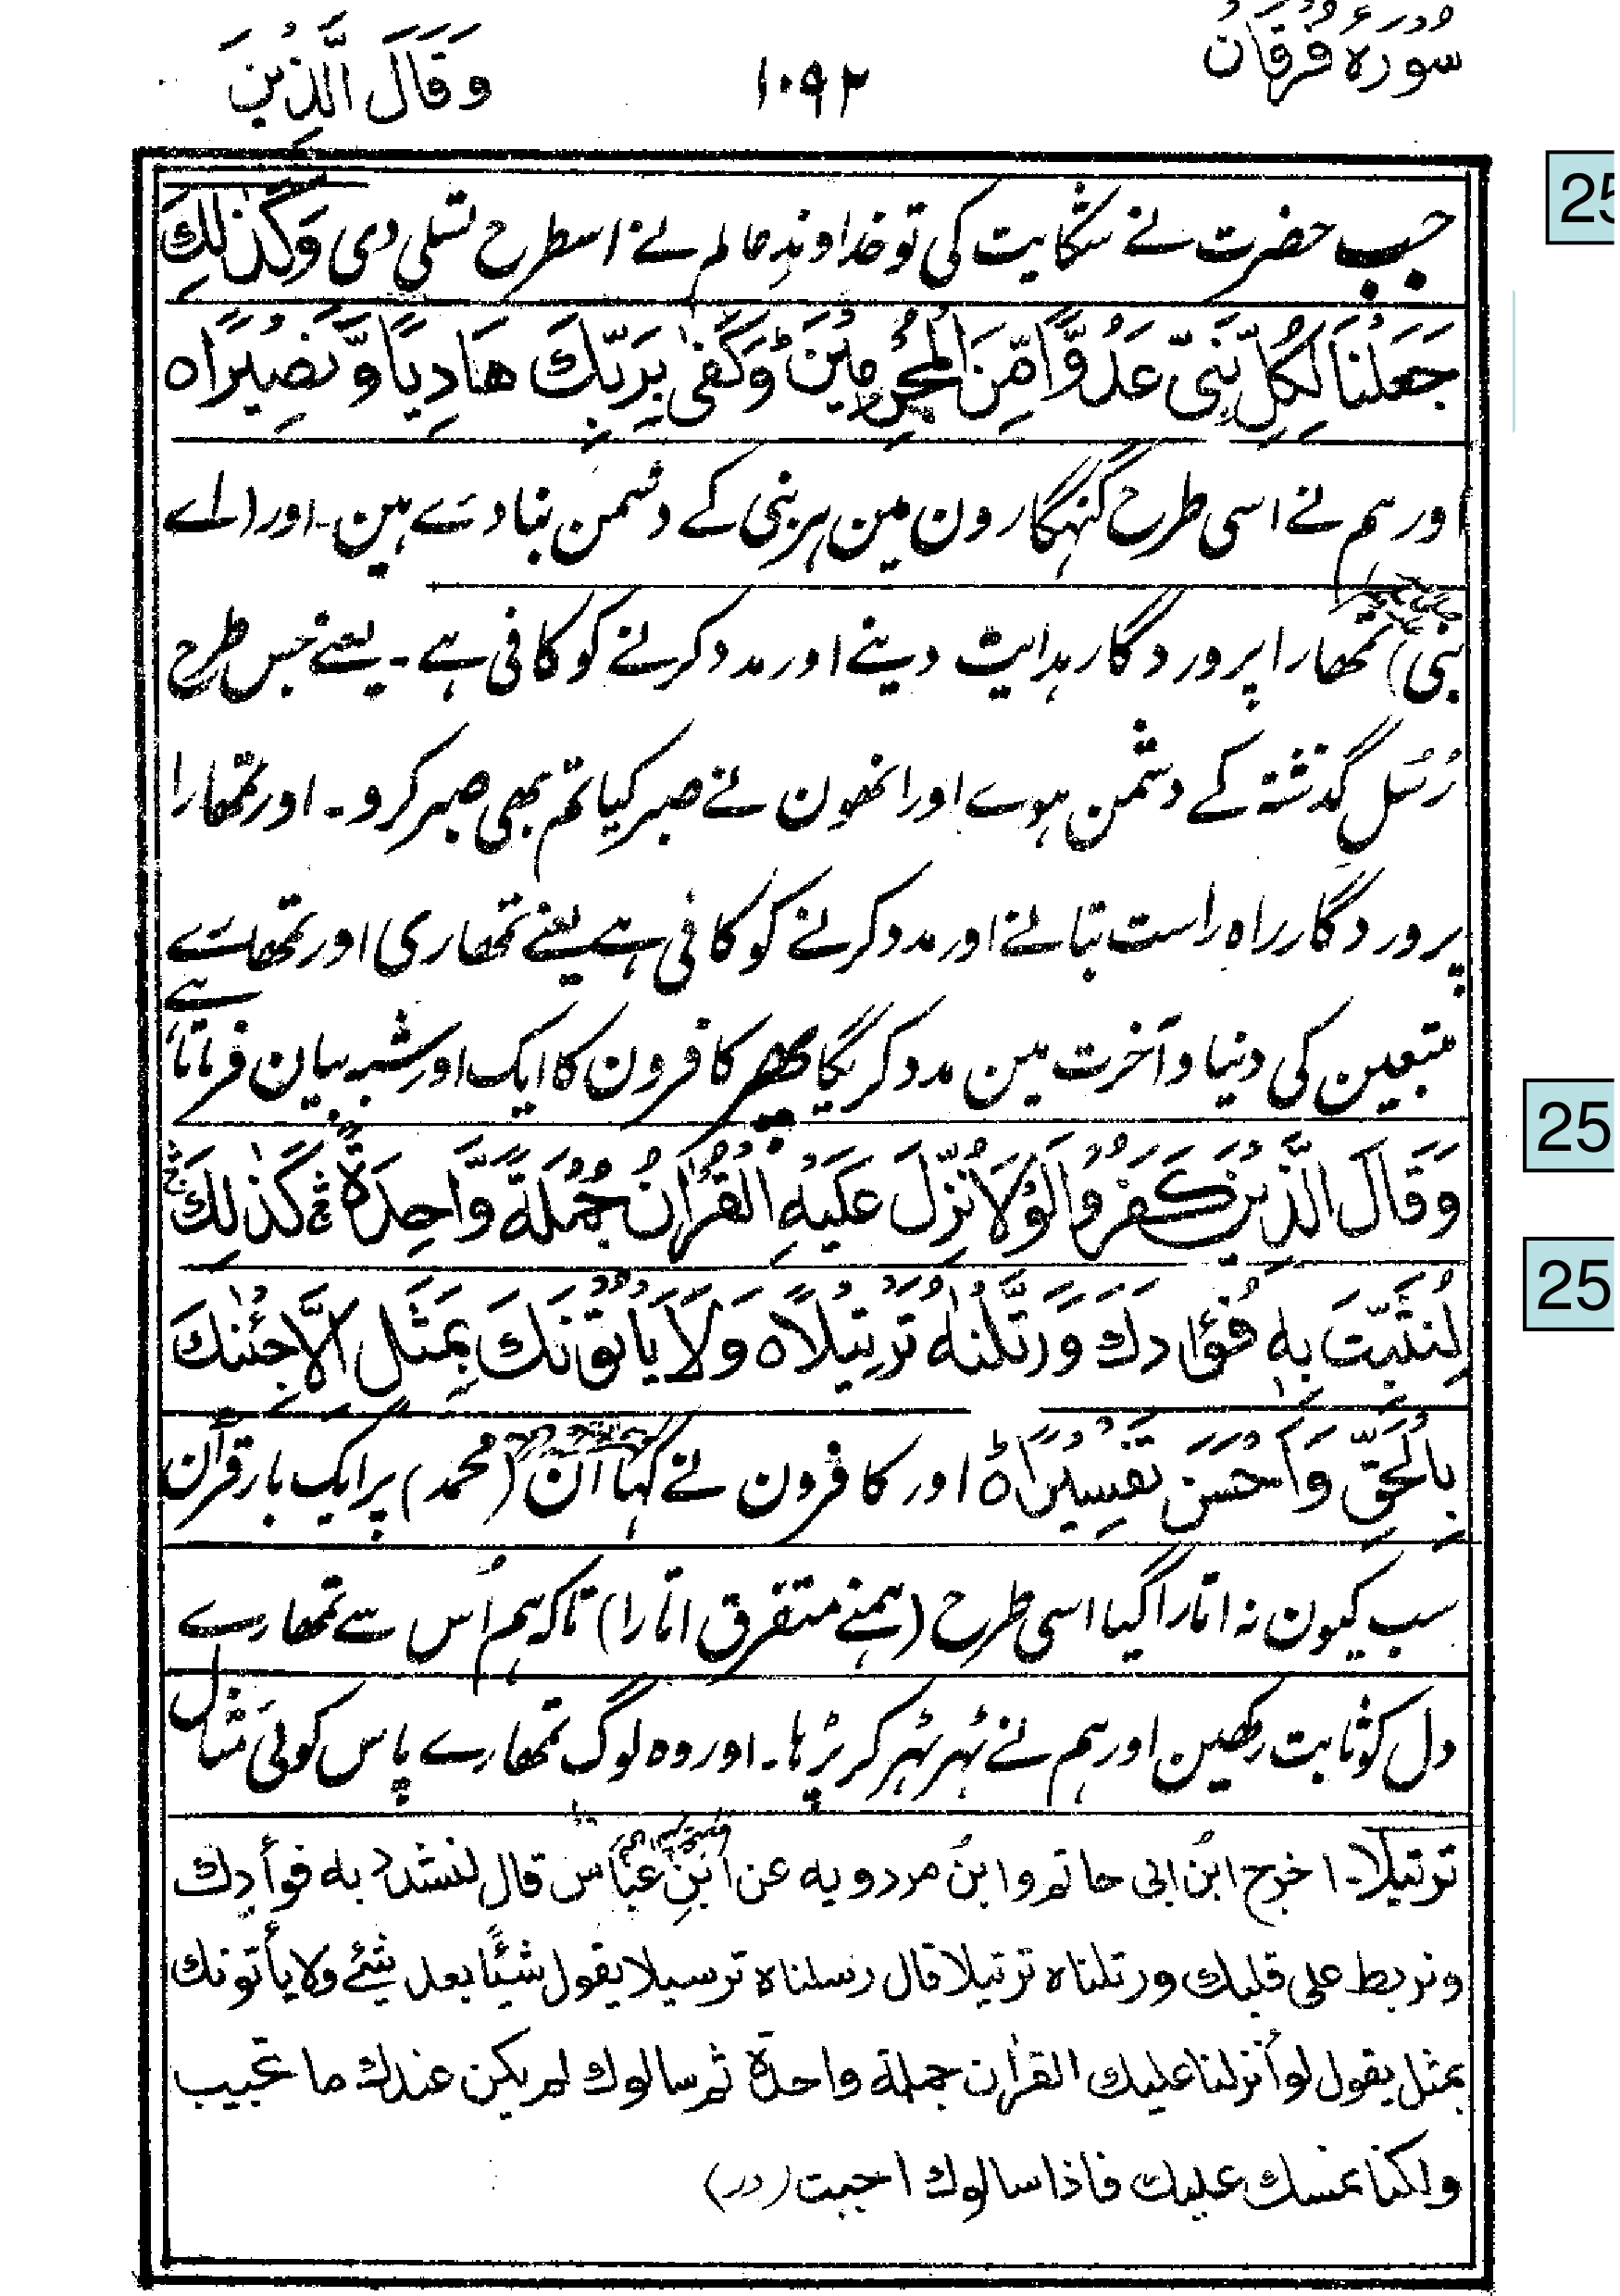 سُوْرَۂ فُرْقَانْ
١٠٩٢
وَقَالَ الَّذِيْنَ
جب حضرت نے شکایت کی تو خداوندِ عالم نے اسطرح تسلی دی وَكَذٰلِكَ
25
جَعَلْنَا لِكُلِّ نَبِيٍّ عَدُوًّا مِّنَ الْمُجْرِمِيْنَ ؕ وَكَفٰى بِرَبِّكَ هَادِيًا وَّنَصِيْرًا ه
اور ہم نے اسی طرح گنہگارون مین ہر نبی کے دشمن بنا دئے ہین۔ اور (اے
نبی) تمھارا پروردگار ہدایت دینے اور مدد کرنے کو کافی ہے۔ یعنے جس طرح
رُسُل گذشتہ کے دشمن ہوے اور انھون نے صبر کیا تم بھی صبر کرو۔ اور تمھارا
پروردگار راہ راست بتانے اور مدد کرنے کو کافی ہے یعنے تمھاری اور تمھارے
متبعین کی دنیا و آخرت مین مدد کریگا پھر کافرون کا ایک اور شبہ بیان فرماتا ہے
25
وَقَالَ الَّذِيْنَ كَفَرُوْا لَوْلَا نُزِّلَ عَلَيْهِ الْقُرْاٰنُ جُمْلَةً وَّاحِدَةً ۛ كَذٰلِكَ ۛ
25
لِنُثَبِّتَ بِهٖ فُؤَادَكَ وَرَتَّلْنٰهُ تَرْتِيْلًا ه وَلَا يَأْتُوْنَكَ بِمَثَلٍ اِلَّا جِئْنٰكَ
بِالْحَقِّ وَاَحْسَنَ تَفْسِيْرًا ه ؕ اور کافرون نے کہا ان (محمد) پر ایک بار قرآن
سب کیون نہ اتارا گیا اسی طرح (ہمنے متفرق اتارا) تاکہ ہم اُس سے تمھارے
دل کو ثابت رکھین اور ہم نے ٹہر ٹہر کر پڑہا۔ اور وہ لوگ تمھارے پاس کوئی مثال
ترتیلا۔ اخرج ابنُ ابی حاتم وابنُ مردویہ عن ابنِ عباس قال لنشدد به فوأدك
ونربط على قلبك ورتلناه ترتيلا قال رسلناه ترسيلا يقول شيئًا بعد شيئ ولا يأتونك
بمثل يقول لو أنزلنا عليك القرٰان جملة واحدة ثم سالوك لم يكن عندك ما تجيب
ولكنا نمسك عليك فاذا سالوك اجبت (در)